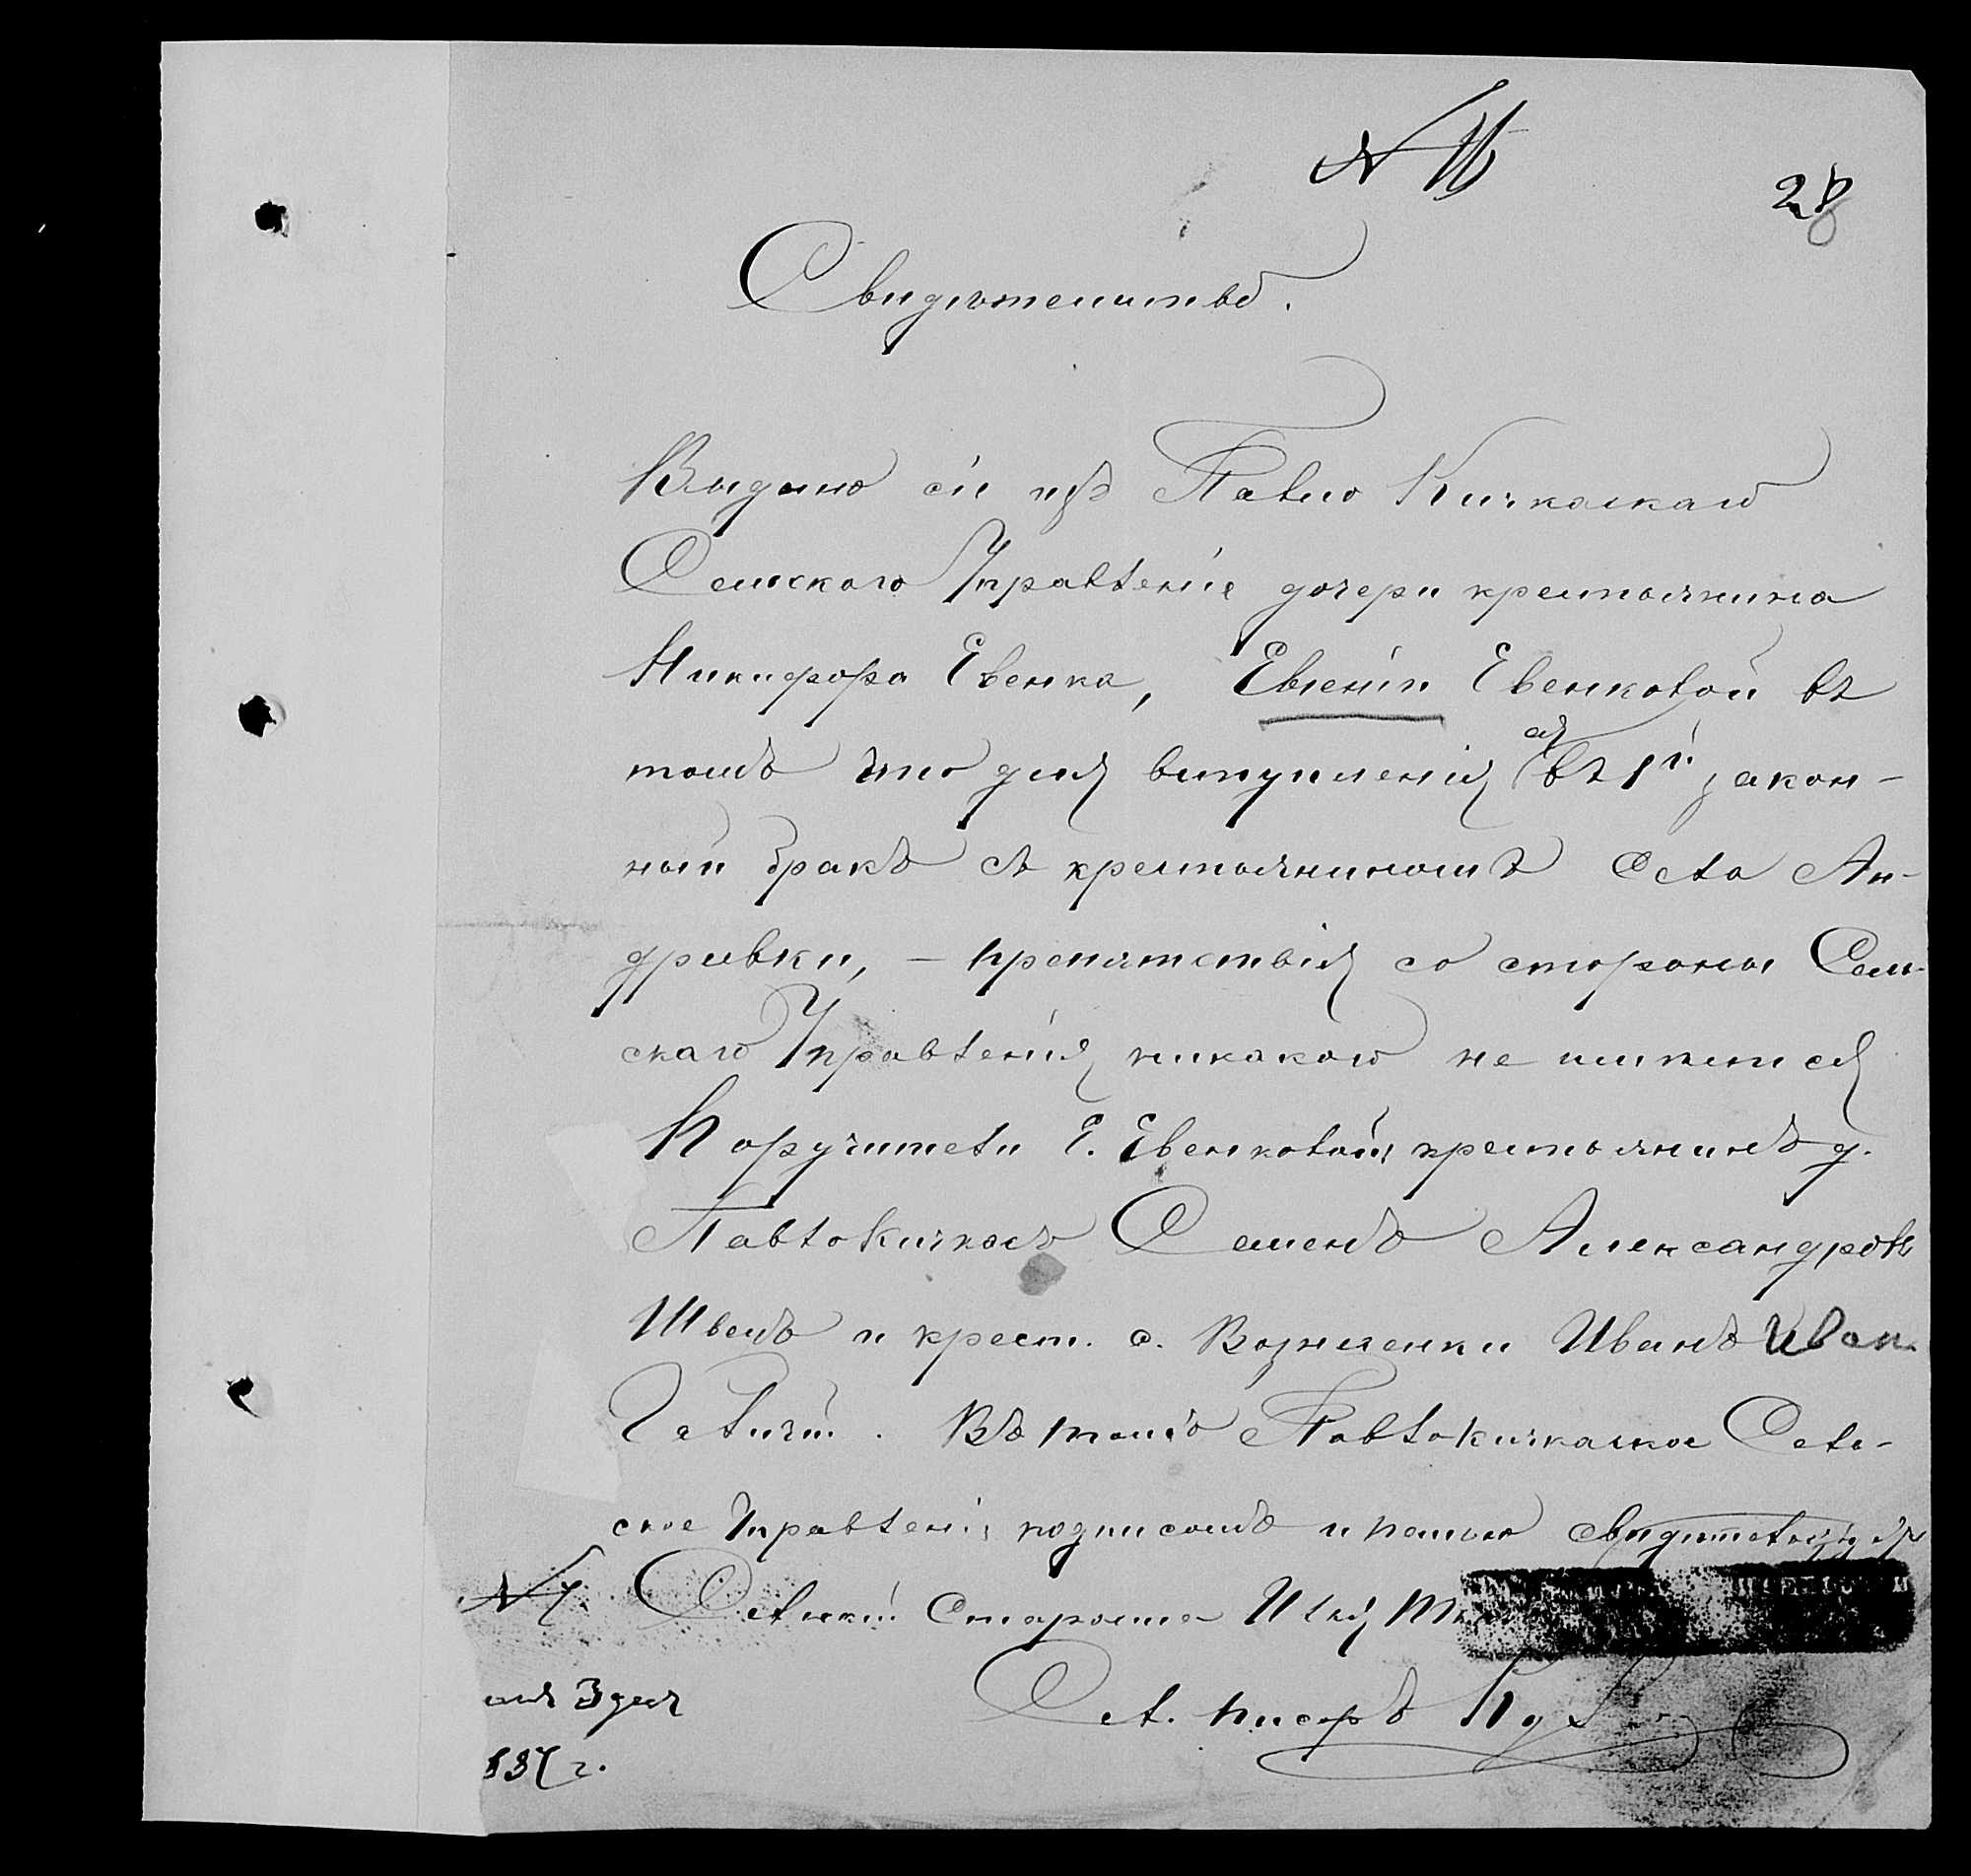 N 16
28
Свидѣтельство.
Выдано сіе изъ Павло Кичкаскаго
Сельскаго Управленія дочери крестьянина
Никифора Евенка, Евгеніи Евенковой въ
томъ что для вступленія ея въ 1й закон-
ный бракъ съ крестьяниномъ села Ан-
дреевки, - препятствія со стороны Сель-
скаго Управленія никакого не имѣется
Поручители Е. Евенковой, крестьянинъ д.
Павлокичкасъ Семенъ Александровъ
Швецъ и крест. с. Вознесенки Иванъ Иван.
Въ томъ Павлокичкаское Сель-
ское Управленіе подписомъ и печатью свидѣтельствуетъ
N 7. Сельскій Староста Илья
3 дня
1887 г. Сел. писарь